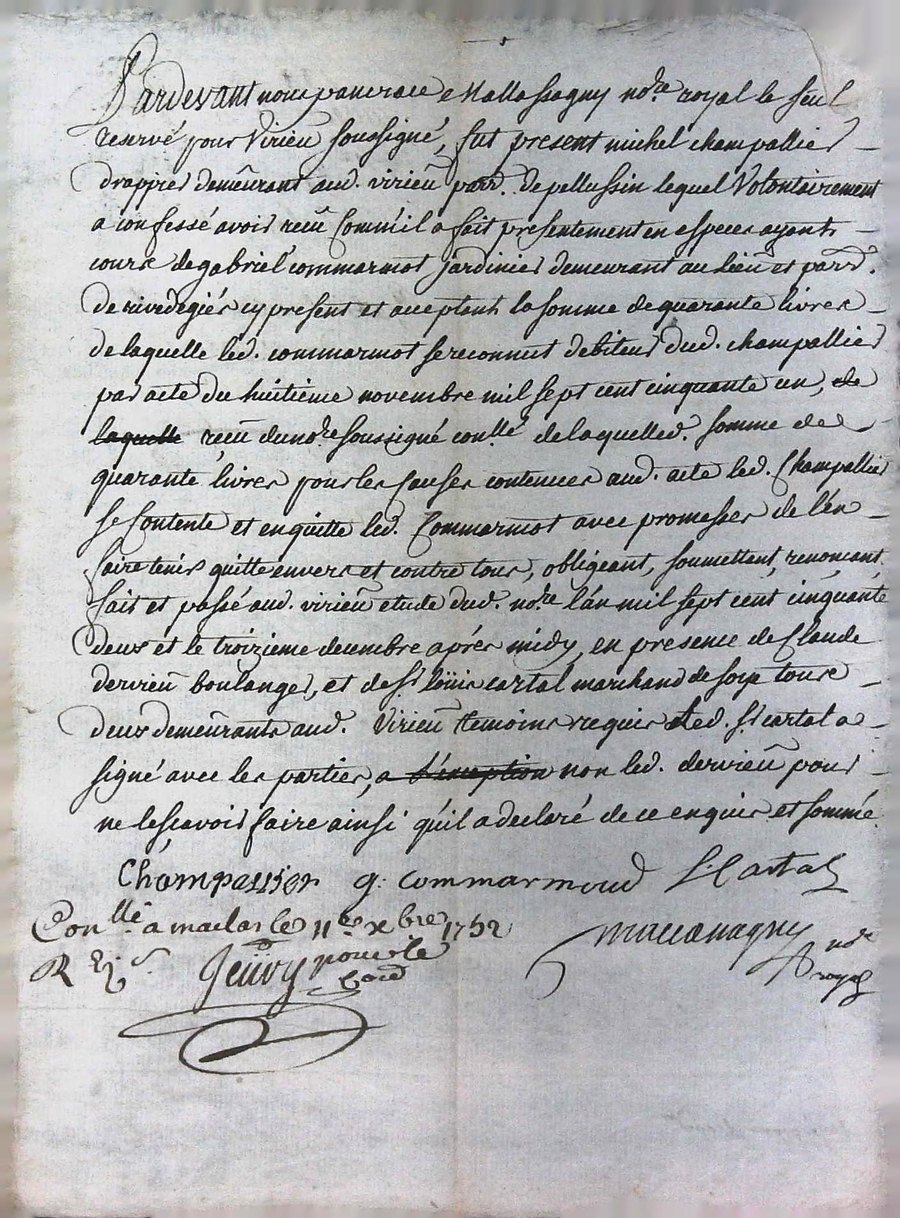 Pardevant nous pancrace Mallassagny no.re royal le seul
reservé pour Virieu soussigné, fut present michel champallier
drappier demeurant aud. virieu parr. de pellussin lequel Volontairement
a confessé avoir reçu Comm'il a fait presentement en especes ayant
cours de gabriel commarmot jardinier demeurant au lieu et parr.
de rivedegiér cy present et acceptant la somme de quarante livres
de laquelle led. commarmot se reconnut debiteur dud. champallier
par acte du huitième novembre mil sept cent cinquante un, de
laquelle reçu du no.re soussigné con.llé de laquelle d. somme de
quarante livres pour les Causes contenues aud. acte led. Champallier
se Contente et en quitte led. Commarmot avec promesses de l'en
faire tenir quitte envers et contre tous, obligeant, soumettant, renonçant.
fait et passé aud. virieu etude dud. no.re l'an mil sept cent cinquante
deux et le troizieme decembre aprés midy, en presence de Claude
dervieu boulanger, et de Sr. loüis cartal marchand de soye tous
deux demeurants aud. Virieu temoins requis led. Sr. cartal a
signé avec les parties, a l'éxeption non led. dervieu pour
ne le scavoir faire ainsi qu'il a declaré de ce enquis et sommé.
Champallier g: commarmoud L. Cartal
Con.llé a maclas le 11e xbre 1752
no.re royal